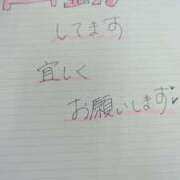 してます
宜しく
お願いします♥